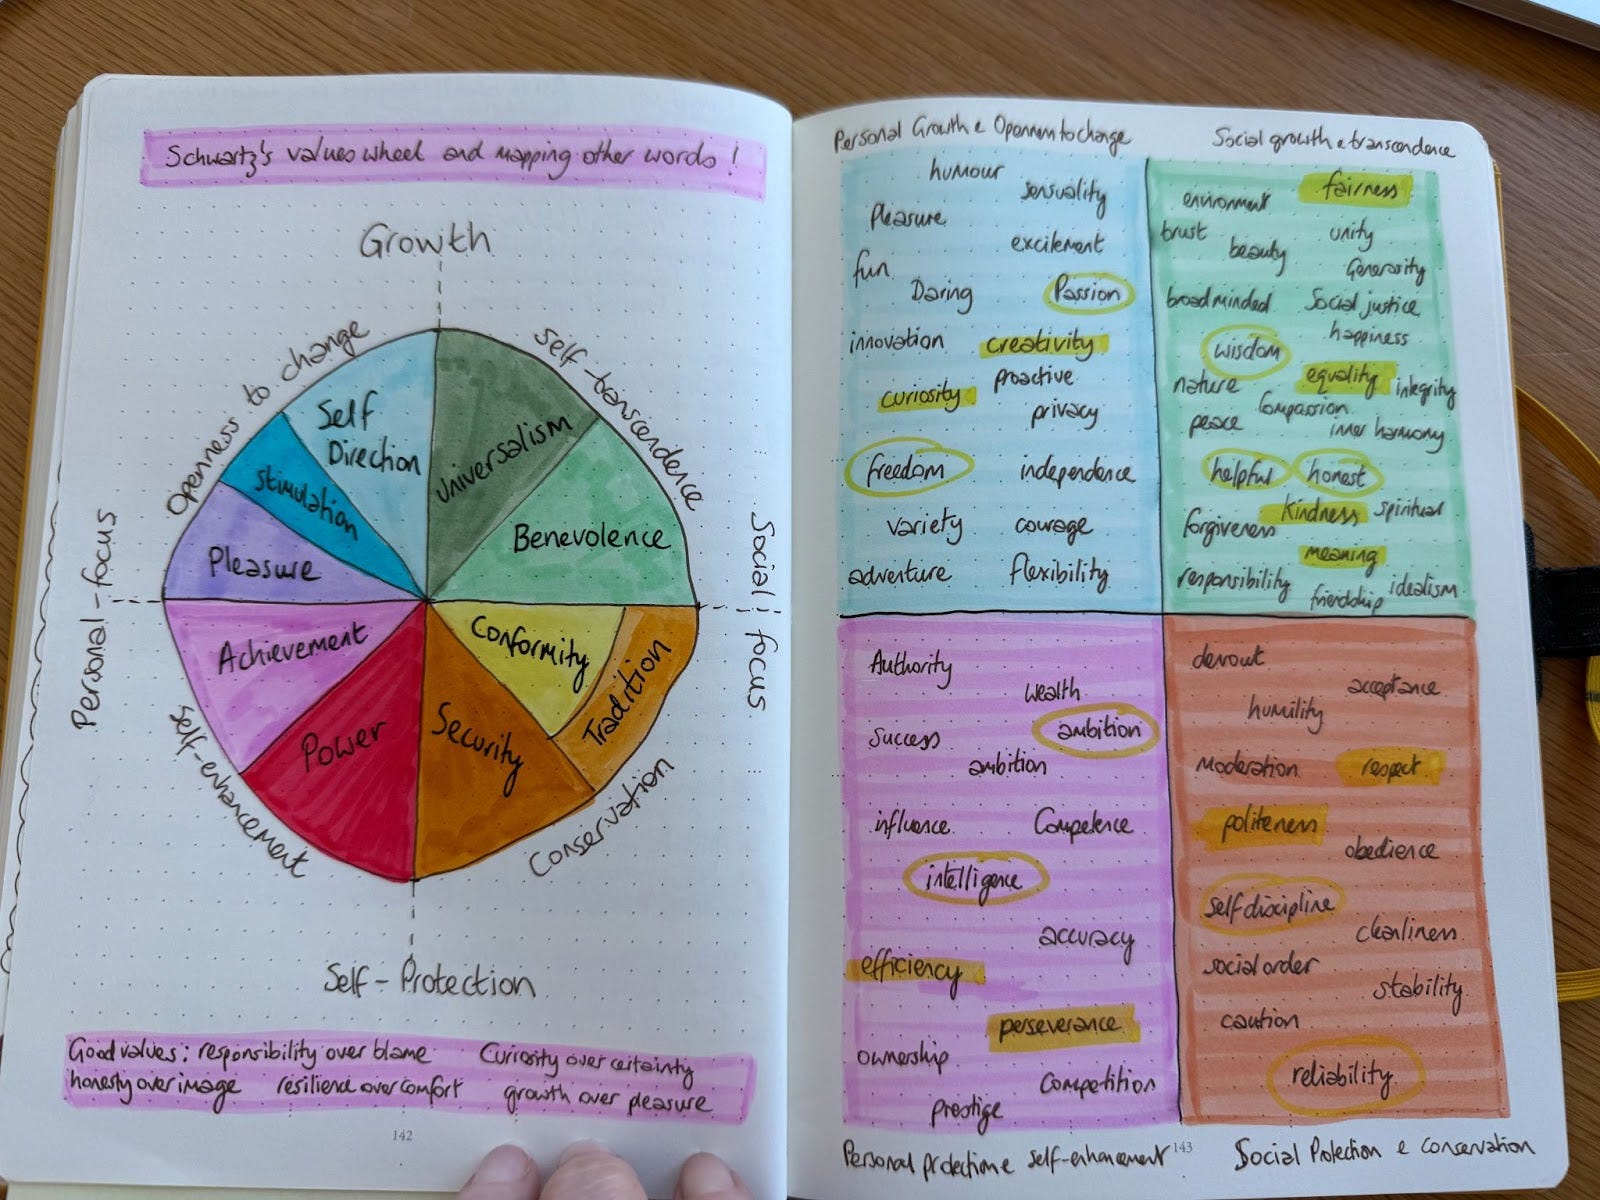 Schwartz's values wheel and mapping other words !
Growth
Openness to change
Self-transcendence
Self Direction
Universalism
Stimulation
Benevolence
Pleasure
Personal-focus
Social focus
Achievement
Conformity
Tradition
Power
Security
Self-enhancement
Conservation
Self-Protection
Good values: responsibility over blame Curiosity over certainty
honesty over image resilience over comfort growth over pleasure
142
Personal Growth e Openness to change
humour
sensuality
Pleasure
excitement
fun
Daring Passion
innovation creativity
proactive
curiosity
privacy
freedom independence
variety courage
adventure flexibility
Social growth e transcendence
environment fairness
trust unity
beauty
Generosity
broadminded Social justice
happiness
wisdom
nature equality integrity
Compassion
peace inner harmony
helpful honest
Kindness spiritual
forgiveness
meaning
responsibility idealism
friendship
Authority
wealth
success ambition
ambition
influence Competence
intelligence
accuracy
efficiency
perseverance
ownership
Competition
prestige
Personal protection e self-enhancement
devout
acceptance
humility
Moderation respect
politeness
obedience
self discipline
cleanliness
social order
stability
caution
reliability
143
Social Protection e conservation